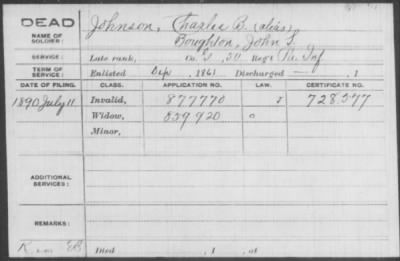 DEAD
NAME OF SOLDIER:
Johnson, Charles B. (alias)
Boughton, John S.
SERVICE:
Late rank, Co. Reg't Inf
TERM OF SERVICE:
Enlisted Sep, 1861 Discharged , 1
DATE OF FILING. CLASS. APPLICATION NO. LAW. CERTIFICATE NO.
1890 July 11 Invalid, 877770 728577
Widow, 839920
Minor,
ADDITIONAL SERVICES:
REMARKS:
Died , 1 , at